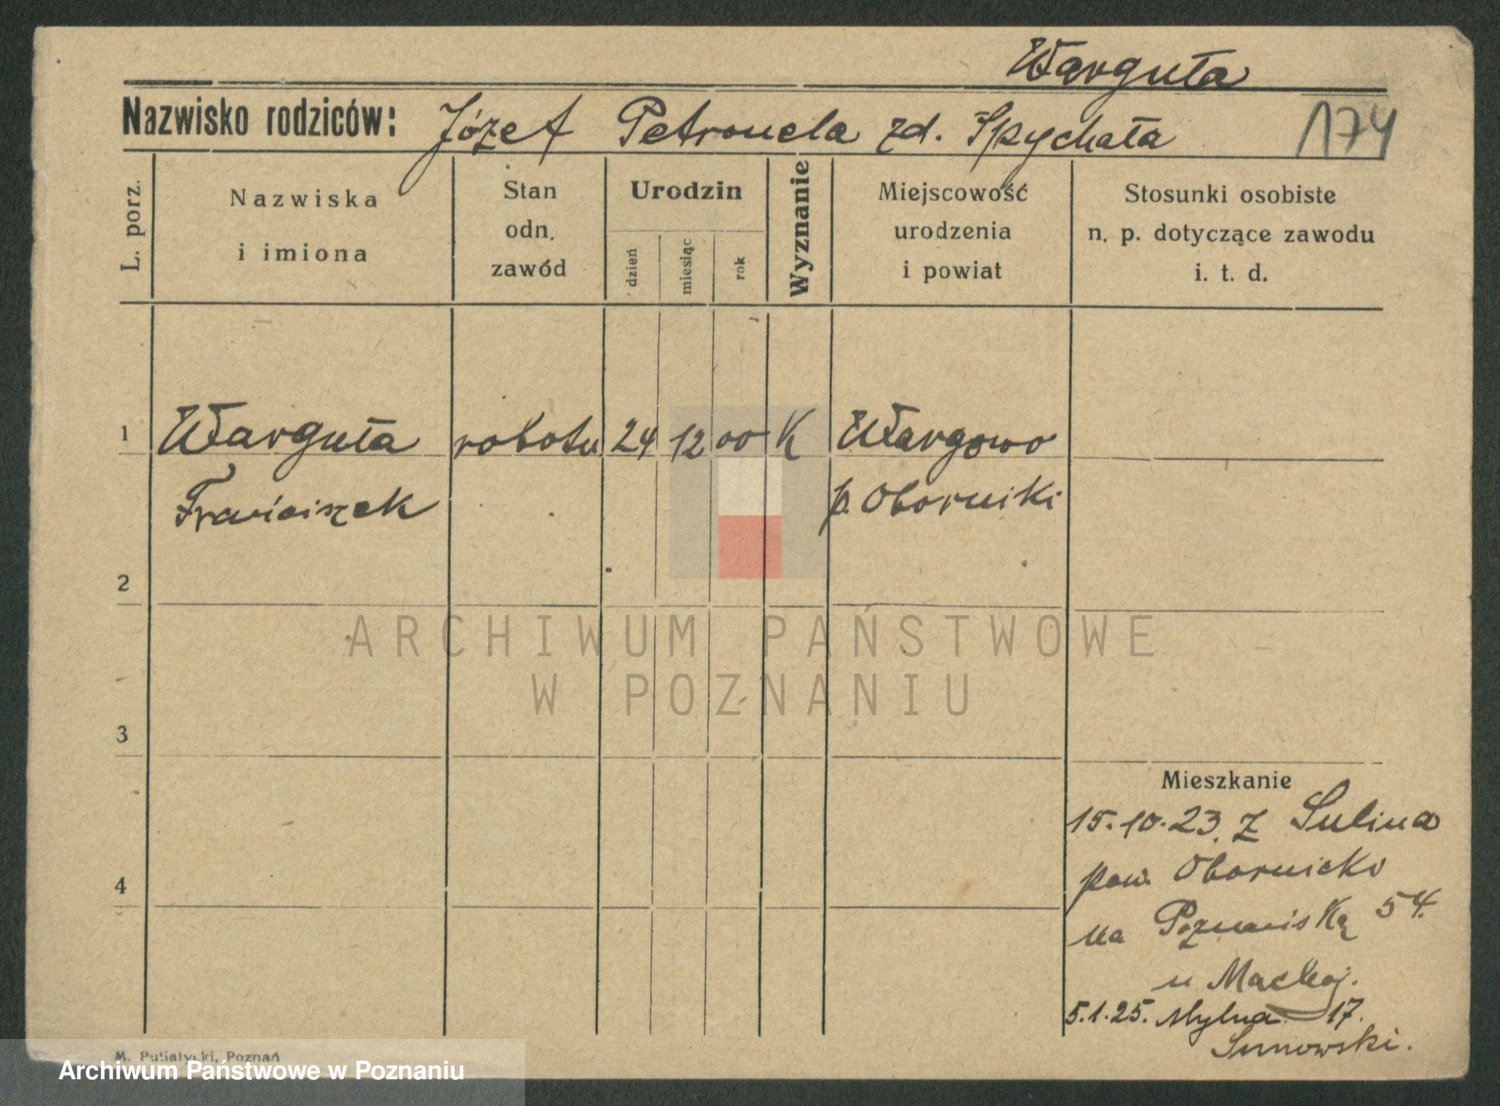 Warguła
Nazwisko rodziców: Józef Petronela zd. Spychała 174
L. porz.
Nazwiska
i imiona
Stan
odn.
zawód
Urodzin
dzień
miesiąc
rok
Wyznanie
Miejscowość
urodzenia
i powiat
Stosunki osobiste
n. p. dotyczące zawodu
i. t. d.
1 Warguła robotn 24 12 00 K Wargowo
Franciszek p. Oborniki
2
ARCHIWUM PAŃSTWOWE
W POZNANIU
3
Mieszkanie
15.10.23. z Sulina
pow. Obornicko
4
na Poznańską 54.
u
5.1.25. Mylna 17.
M. Putiatycki, Poznań
Archiwum Państwowe w Poznaniu